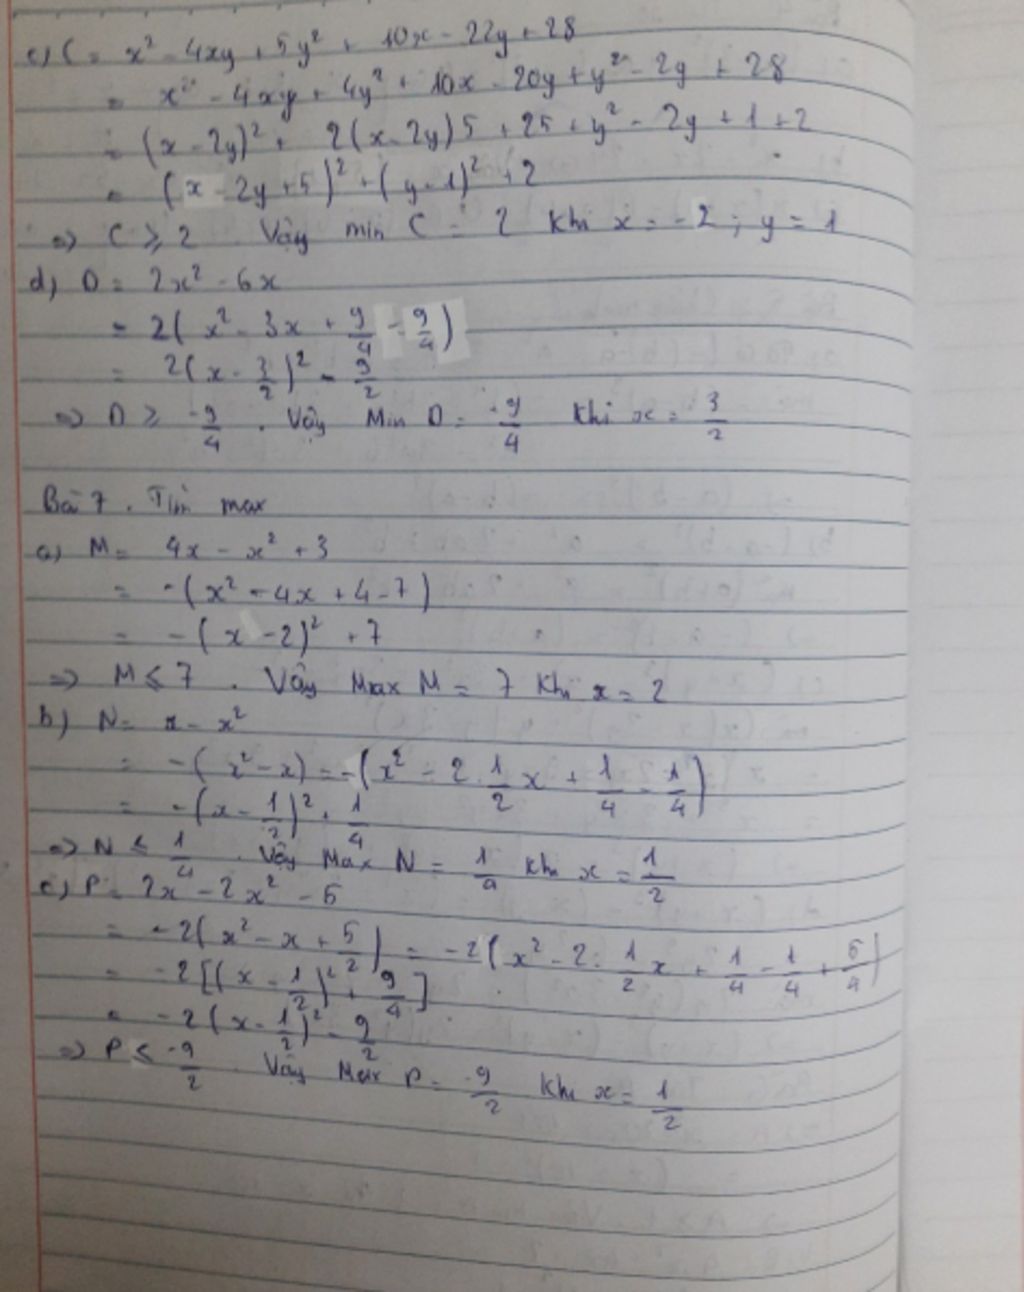 c) C = x² - 4xy + 5y² + 10x - 22y + 28
= x² - 4xy + 4y² + 10x - 20y + y² - 2y + 28
= (x - 2y)² + 2(x - 2y) 5 + 25 + y² - 2y + 1 + 2
= (x - 2y + 5)² + (y - 1)² + 2
=> C ≥ 2 . Vậy min C = 2 khi x = -2 ; y = 1
d) D = 2x² - 6x
= 2( x² - 3x + 9/4 - 9/4 )
= 2( x - 3/2 )² - 9/2
=> D ≥ -9/4 . Vậy Min D = -9/4 khi x = 3/2
Bài 7 . Tìm max
a) M = 4x - x² + 3
= -( x² - 4x + 4 - 7 )
= -( x - 2)² + 7
=> M ≤ 7 . Vậy Max M = 7 khi x = 2
b) N = x - x²
= -( x² - x) = -( x² - 2 . 1/2 x + 1/4 - 1/4 )
= -( x - 1/2 )² + 1/4
=> N ≤ 1/4 . Vậy Max N = 1/4 khi x = 1/2
c) P = 2x - 2x² - 5
= -2( x² - x + 5/2 ) = -2( x² - 2 . 1/2 x + 1/4 - 1/4 + 5/4 )
= -2 [( x - 1/2 )² + 9/4 ]
= -2 ( x - 1/2 )² - 9/2
=> P ≤ -9/2 . Vậy Max P = -9/2 khi x = 1/2